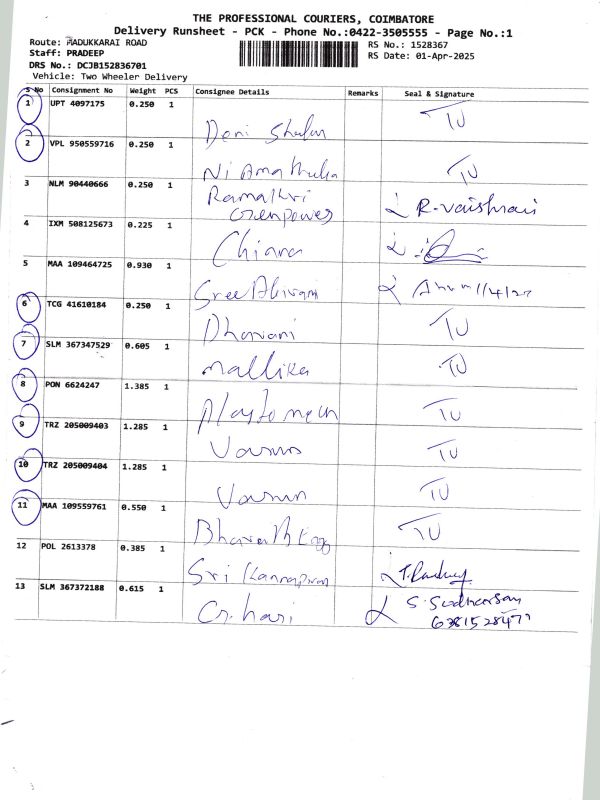 THE PROFESSIONAL COURIERS, COIMBATORE
Delivery Runsheet - PCK - Phone No.:0422-3505555 - Page No.:1
Route: MADUKKARAI ROAD
RS No.: 1528367
Staff: PRADEEP
RS Date: 01-Apr-2025
DRS No.: DCJB152836701
Vehicle: Two Wheeler Delivery
S No Consignment No Weight PCS Consignee Details Remarks Seal & Signature
1 UPT 4097175 0.250 1 TU
Doni
2 VPL 950559716 0.250 1 TU
3 NLM 90440666 0.250 1 R. Vaishnavi
Greenpower
4 IXM 508125673 0.225 1
Chiara
5 MAA 109464725 0.930 1
Sree
6 TCG 41610184 0.250 1 TU
Dharani
7 SLM 367347529 0.605 1 TU
Mallika
8 PON 6624247 1.385 1 TU
Plastomech
9 TRZ 205009403 1.285 1 TU
10 TRZ 205009404 1.285 1 TU
11 MAA 109559761 0.550 1 TU
Bharath Egg
12 POL 2613378 0.385 1
Sri
13 SLM 367372188 0.615 1 S. Sudharsan
G. hari